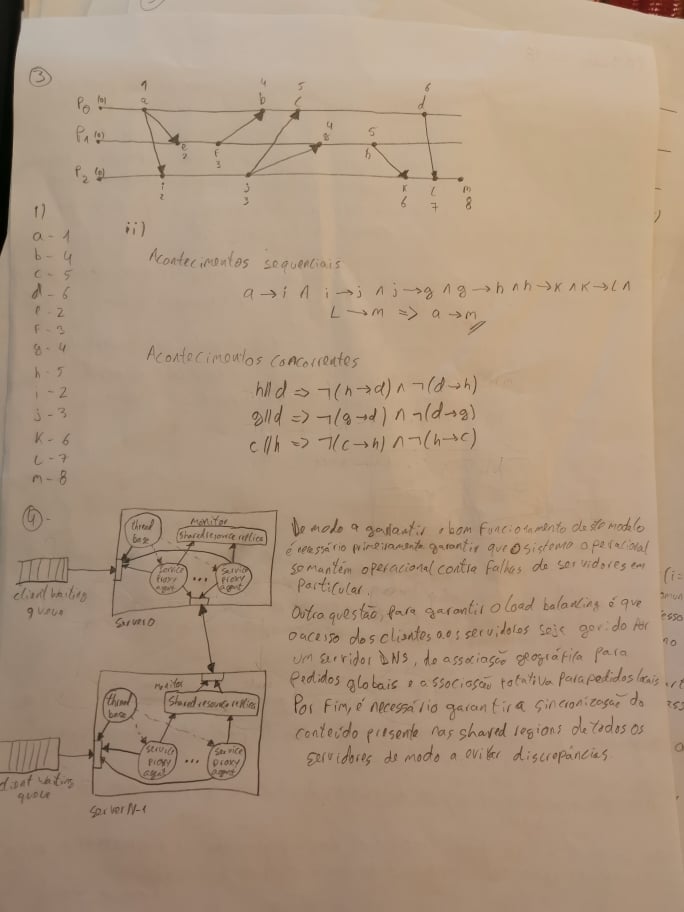 3
1 4 5 6
P0 (0) a b c d
4 5
P1 (0) e f g h
2 3
P2 (0) i j k l m
2 3 6 7 8
i)
a - 1
b - 4
c - 5
d - 6
e - 2
f - 3
g - 4
h - 5
i - 2
j - 3
k - 6
L - 7
m - 8
ii)
Acontecimentos sequenciais
a → i ∧ i → j ∧ j → g ∧ g → h ∧ h → k ∧ k → L ∧
L → m => a → m
Acontecimentos concorrentes
h∥d => ¬(h→d) ∧ ¬(d→h)
g∥d => ¬(g→d) ∧ ¬(d→g)
c∥h => ¬(c→h) ∧ ¬(h→c)
4 -
client waiting
queue
thread
base
monitor
Shared resource replica
Service
proxy
agent
...
Service
proxy
agent
server 0
client waiting
queue
thread
base
monitor
Shared resource replica
service
proxy
agent
...
service
proxy
agent
server N-1
De modo a garantir o bom funcionamento deste modelo
é necessário primeiramente garantir que o sistema operacional
se mantém operacional contra falhas de servidores em
particular.
Outra questão, para garantir o load balancing é que
o acesso dos clientes aos servidores seja gerido por
um servidor DNS, de associação geográfica para
pedidos globais e associação rotativa para pedidos locais.
Por fim, é necessário garantir a sincronização do
conteúdo presente nas shared regions de todos os
servidores de modo a evitar discrepâncias.